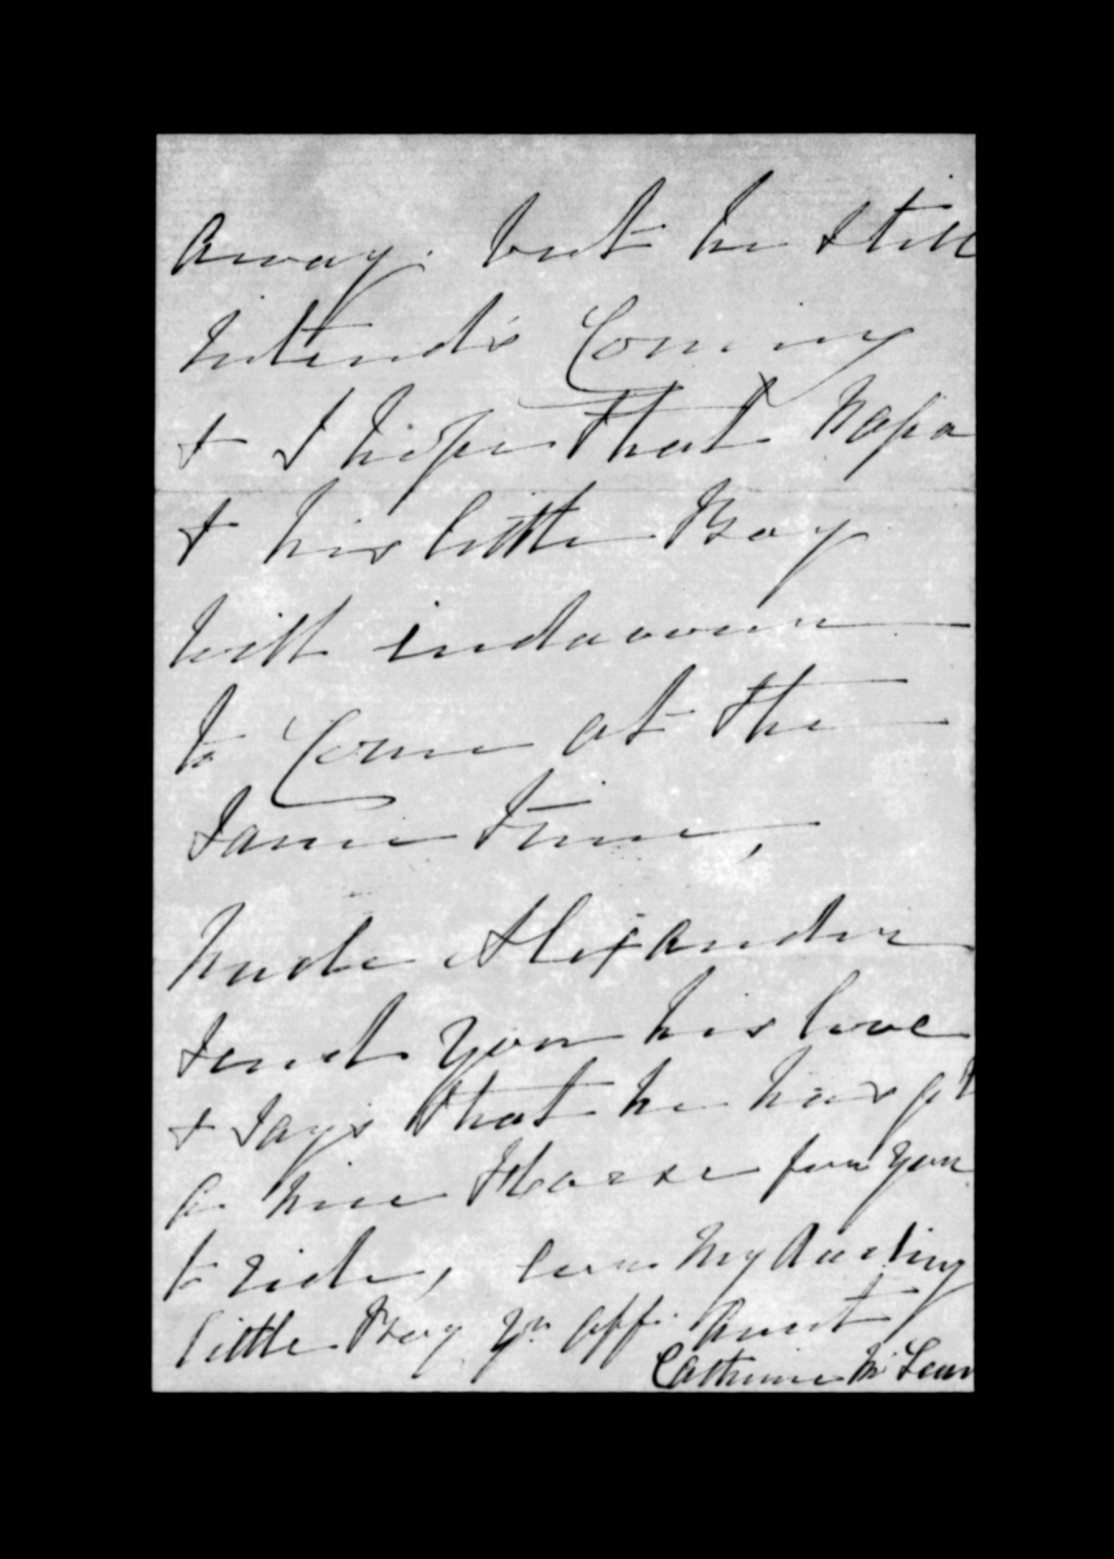 away. but he still
intends Coming
& I hope that Papa
& his little Boy
will indavour
to Come at the
Same time,
Uncle Alexander
send you his love
& says that he has got
a nice Horse for you
to ride, ever my darling
little Boy yr aff. Aunt
Catherine McLean